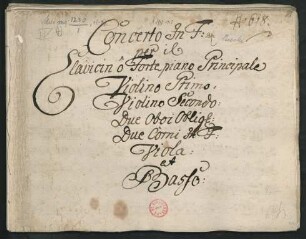 Concerto In F:
per il
Clavicin ô Forte piano Principale
Violino Primo.
Violino Secondo.
Due Oboi Oblig:
Due Corni in F:
Viola:
et
Basso: